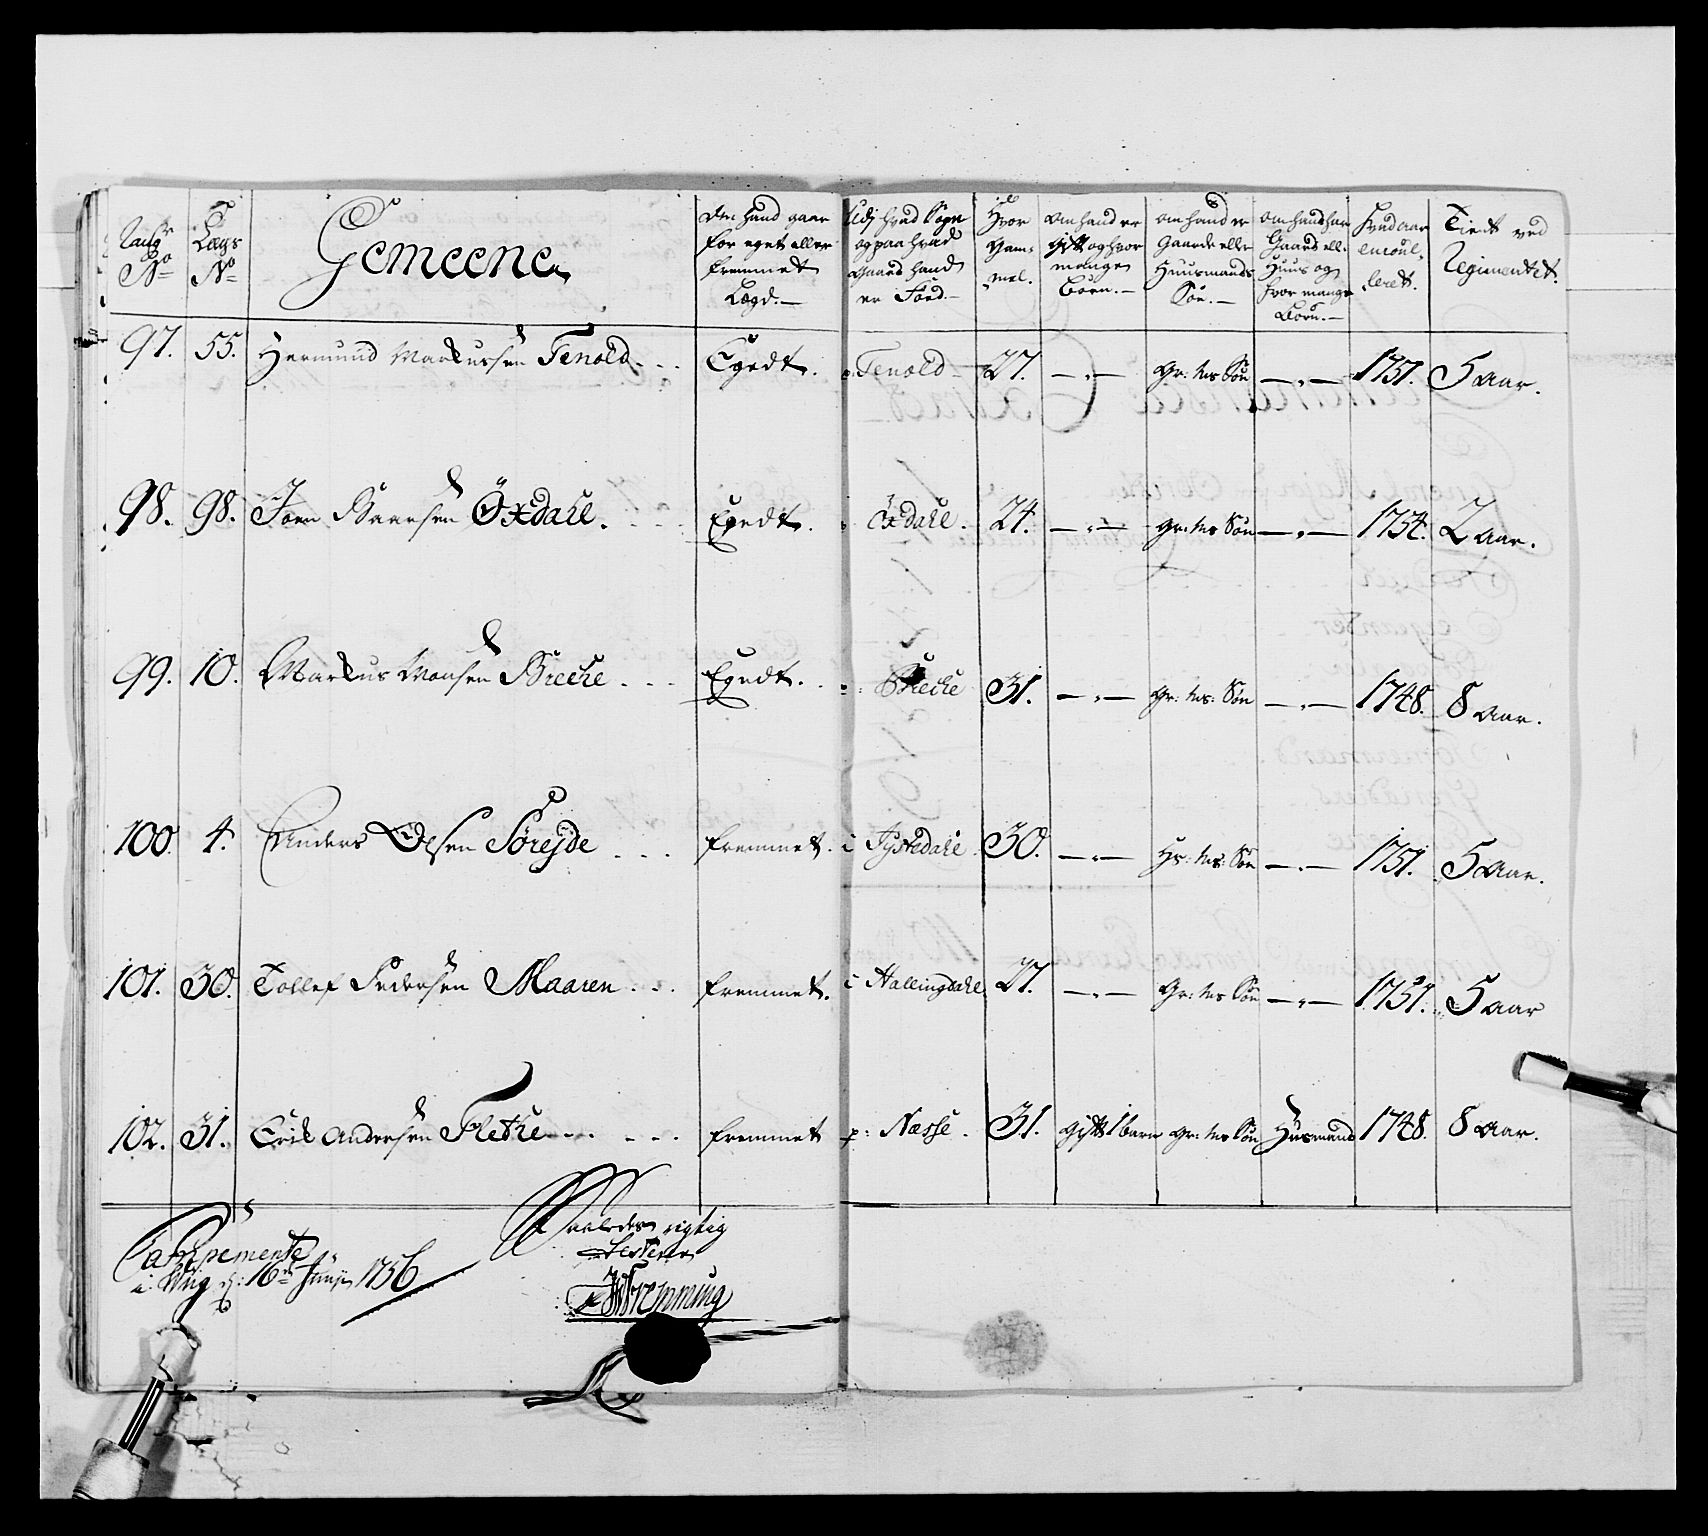 Rang No
Lægs No
Gemeene
Om hand gaar for eget eller fremmet Lægd.
Udj hvad Sogn og paa hvad Gaard hand er Född.
Hvor Gammel.
Om hand er gift og hvor mange Börn.
Om hand er Gaarde eller Huusmands Sön.
Om hand har Gaard ell. Huus og hvor mange Börn.
Hvad aar enroulleret.
Tient ved Regimentet.
97. 55. Hermund Markussen Tenold Egedt. p. Tenold 27. Gr: Ms Sön 1751. 5 Aar.
98. 98. Joen Baarsen Öxdahl. Egedt. Öxdahl. 24. Gr: Ms Sön 1754. 2 Aar.
99. 10. Markus Monsen Brecke Egedt. Brecke 31. Gr: Ms: Sön 1748. 8 Aar.
100. 4. Anders Olsen Sörejde fremmet. i Jystedahl. 30. Hs: Ms: Sön 1751. 5 Aar.
101. 30. Tollef Pedersen Maaren fremmet. i Hallingdahl. 27. Gr: Ms Sön 1751. 5 aar
102. 31. Erik Andersen Fletke fremmet p: Næsse. 31. Gift 1 barn Gr: Ms Sön Husmand 1748. 8 Aar.
Campemente
i Wiig d: 16de Junij 1756
Saaledes rigtig
Testerer